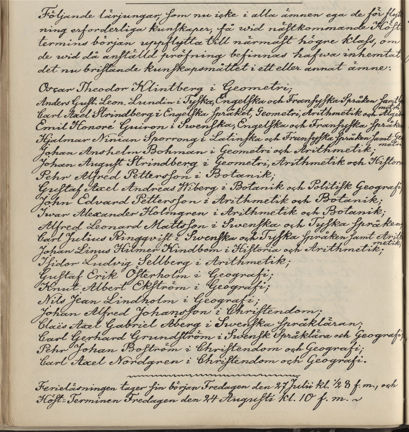 Följande lärjungar, som nu icke i alla ämnen ega de för flyttning erforderliga kunskaper, få vid nästkommande Höst-
termins början uppflytta till närmast högre klass, om
de vid då anställd pröfning befinnas hafva inhemtat
det nu bristande kunskapsmåttet i ett eller annat ämne:
Oscar Theodor Klintberg i Geometri;
Anders Gust. Leon. Lundin i Tyska, Engelska och Fransyska Språken samt
Carl Axel Strindberg i Engelska Språket, Geometri, Arithmetik och
Emil Honoré Guiron i Svenska, Engelska och Fransyska Språken
Hjalmar Ninian Sparrong i Latinska och Fransyska Språken samt
Johan Anshelm Bohman i Geometri och Arithmetik;
Johan August Strindberg i Geometri, Arithmetik och Historia
Pehr Alfred Pettersson i Botanik;
Gustaf Axel Andreas Wiberg i Botanik och Politisk Geografi
John Edvard Pettersson i Arithmetik och Botanik;
Ivar Alexander Holmgren i Arithmetik och Botanik;
Alfred Leonard Mattsson i Svenska och Tyska Språken
Carl Julius Ringqvist i Svenska och Tyska Språken samt Arith-
metik;
Johan Linus Hilmer Kindbom i Historia och Arithmetik;
Isidor Ludvig Sellberg i Arithmetik;
Gustaf Erik Österholm i Geografi;
Knut Albert Ekström i Geografi;
Nils Jean Lindholm i Geografi;
Johan Alfred Johansson i Christendom;
Claës Axel Gabriel Åberg i Svenska Språkläran;
Carl Gerhard Grundström i Svensk Språklära och Geografi;
Pehr Johan Boström i Christendom och Geografi;
Carl Axel Nordgren i Christendom och Geografi.
Ferieläsningen tager sin början Fredagen den 27 Julii kl. ½8 f.m., och
Höst-Terminen Fredagen den 24 Augusti kl. 10 f.m.